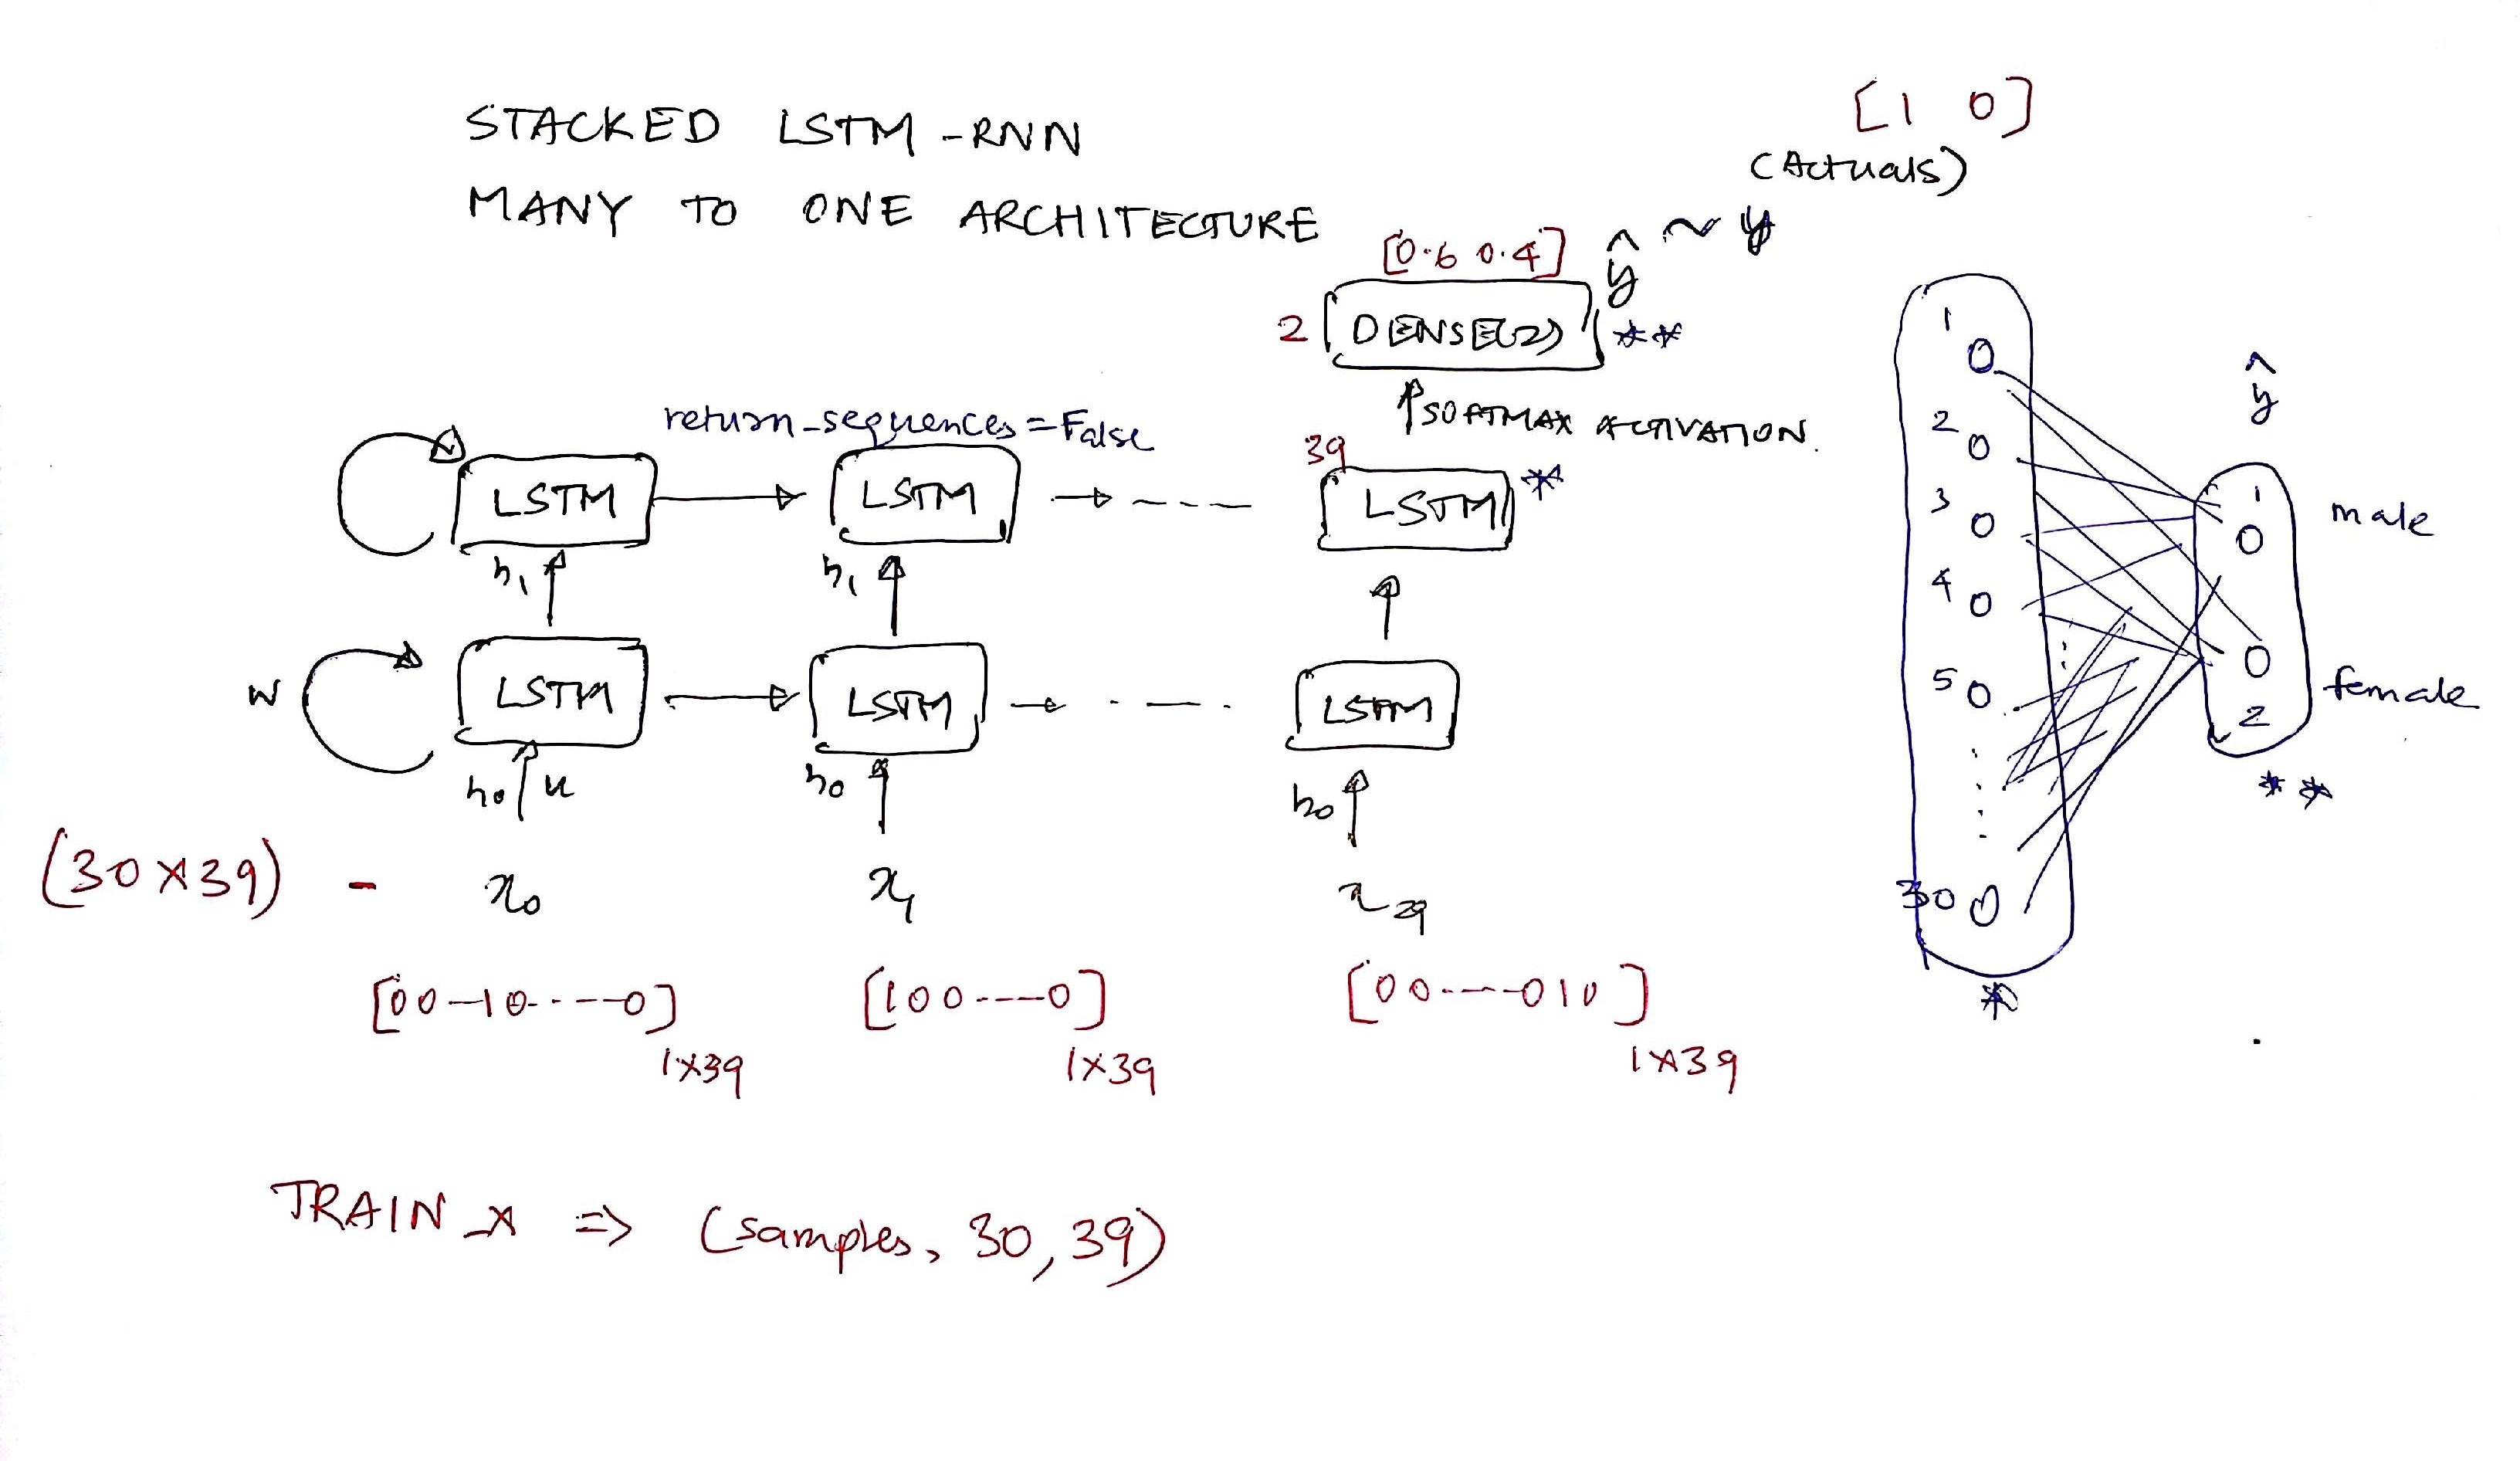 STACKED LSTM-RNN
MANY TO ONE ARCHITECTURE
[1 0]
(Actuals)
[0.6 0.4] ŷ ~ y
2 DENSE(2) **
SOFTMAX ACTIVATION.
return_sequences=False
39
LSTM LSTM LSTM *
h1 h1
W LSTM LSTM LSTM
h0 u h0 h0
(30x39) - x0 x1 x29
[00-10----0] [100----0] [00----010]
1x39 1x39 1x39
TRAIN_X => (samples, 30, 39)
1
0
2
0
3
0
4
0
5
0
30 0
*
ŷ
1
0 male
0 female
2
**